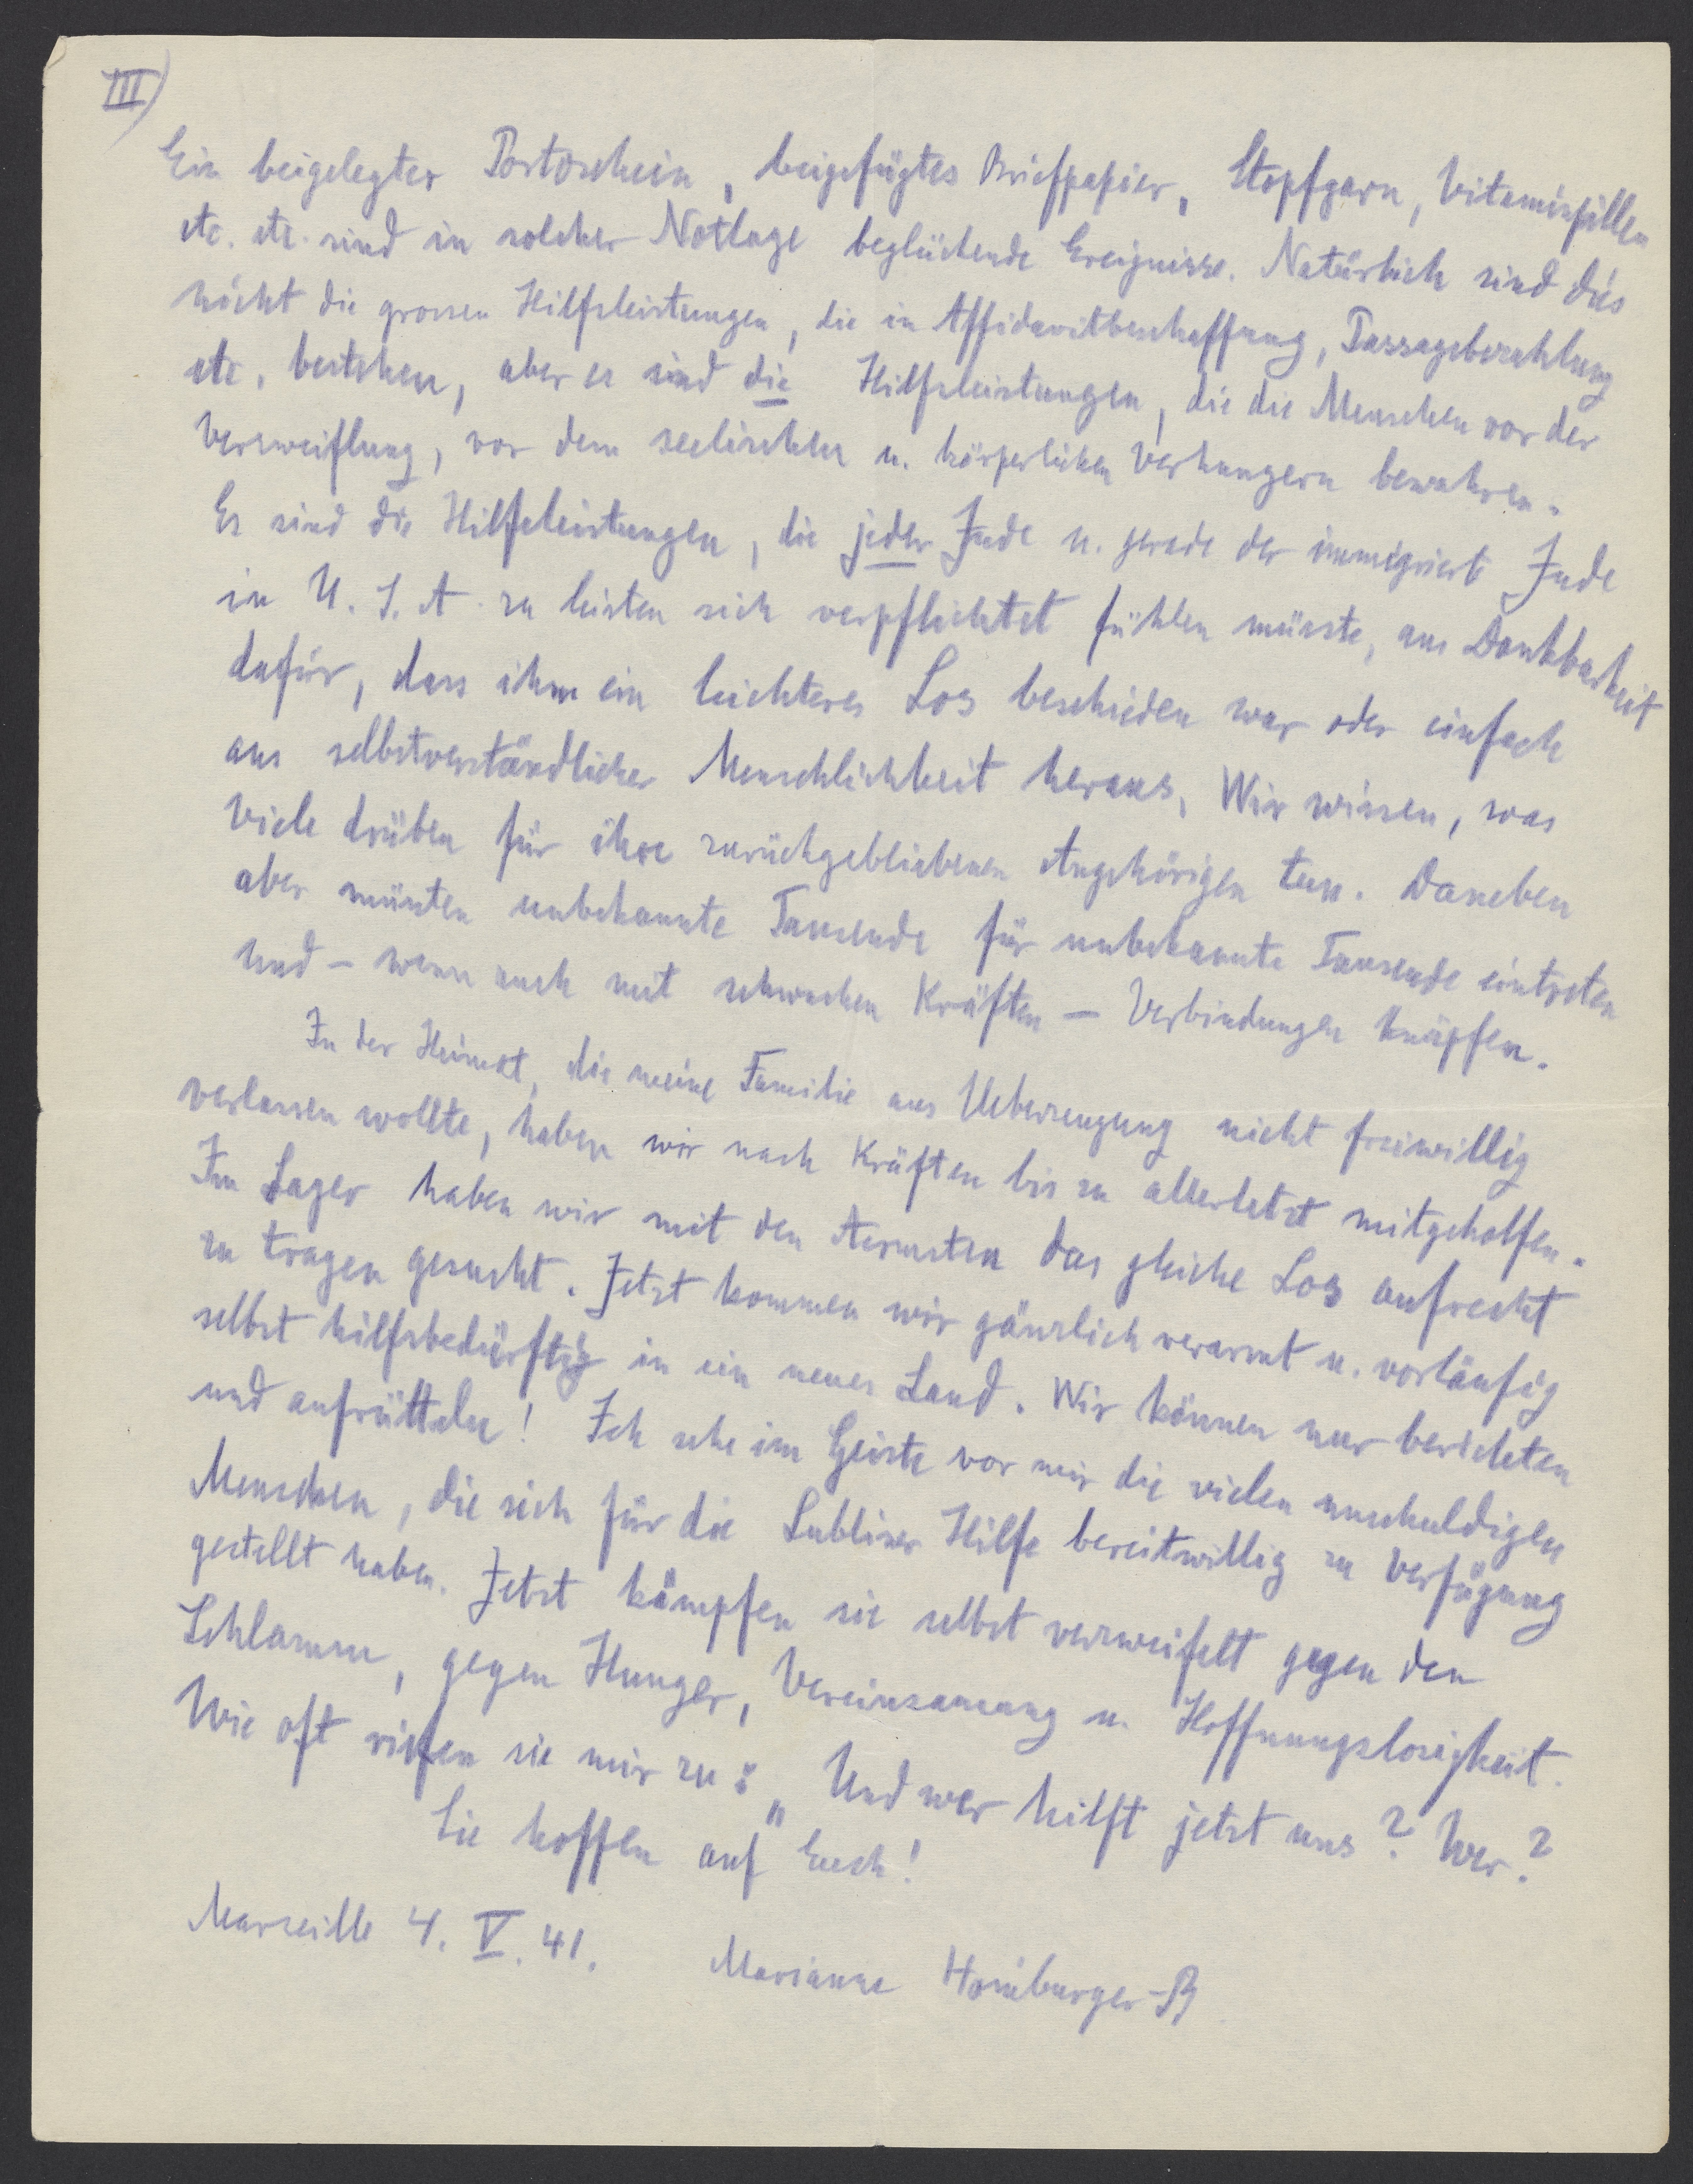 III)
Ein beigelegter Portoschein, beigefügtes Briefpapier, Stopfgarn, Vitaminpillen
etc. etc. sind in solcher Notlage beglückende Ereignisse. Natürlich sind dies
nicht die grossen Hilfsleistungen, die in Affidavitbeschaffung, Passagebezahlung
etc. bestehen, aber es sind die Hilfsleistungen, die die Menschen vor der
Verzweiflung, vor dem seelischen u. körperlichen Verhungern bewahren.
Es sind die Hilfeleistungen, die jeder Jude u. gerade der immigrierte Jude
in U. S. A. zu leisten sich verpflichtet fühlen müsste, aus Dankbarkeit
dafür, dass ihm ein leichteres Los beschieden war oder einfach
aus selbstverständlicher Menschlichkeit heraus. Wir wissen, was
Viele drüben für ihre zurückgebliebenen Angehörigen tun. Daneben
aber müssten unbekannte Tausende für unbekannte Tausende eintreten
und – wenn auch mit schwachen Kräften – Verbindungen knüpfen.
In der Heimat, die meine Familie aus Ueberzeugung nicht freiwillig
verlassen wollte, haben wir nach Kräften bis zu allerletzt mitgeholfen.
Im Lager haben wir mit den Aermsten das gleiche Los aufrecht
zu tragen gesucht. Jetzt kommen wir gänzlich verarmt u. vorläufig
selbst hilfsbedürftig in ein neues Land. Wir können nur berichten
und aufrütteln! Ich sehe im Geiste vor mir die vielen unschuldigen
Menschen, die sich für die Lubliner Hilfe bereitwillig zu Verfügung
gestellt haben. Jetzt kämpfen sie selbst verzweifelt gegen den
Schlamm, gegen Hunger, Vereinsamung u. Hoffnungslosigkeit.
Wie oft riefen sie mir zu: „Und wer hilft jetzt uns? Wer?
Sie hoffen auf Euch!
Marseille 4. V. 41. Marianne Homburger-